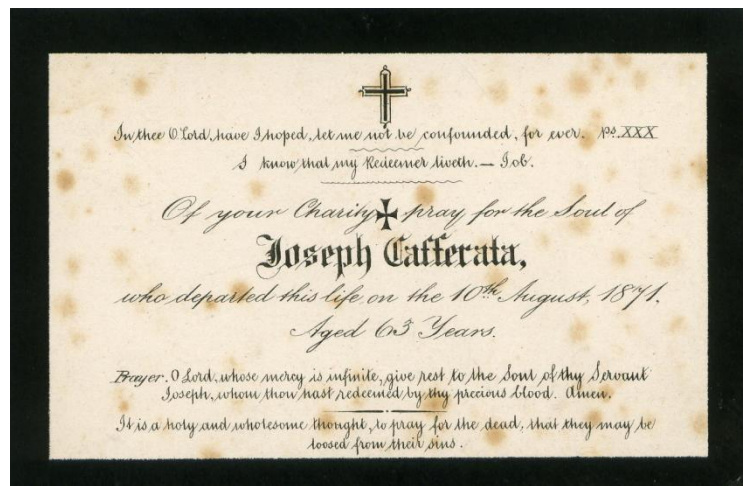 In thee O Lord, have I hoped, let me not be confounded, for ever. Ps. XXX
I know that my Redeemer liveth. — Job.
Of your Charity ✠ pray for the Soul of
Joseph Cafferata,
who departed this life on the 10th August, 1871.
Aged 63 Years.
Prayer. O Lord, whose mercy is infinite, give rest to the Soul of thy Servant
Joseph, whom thou hast redeemed by thy precious blood. Amen.
It is a holy and wholesome thought, to pray for the dead, that they may be
loosed from their sins.